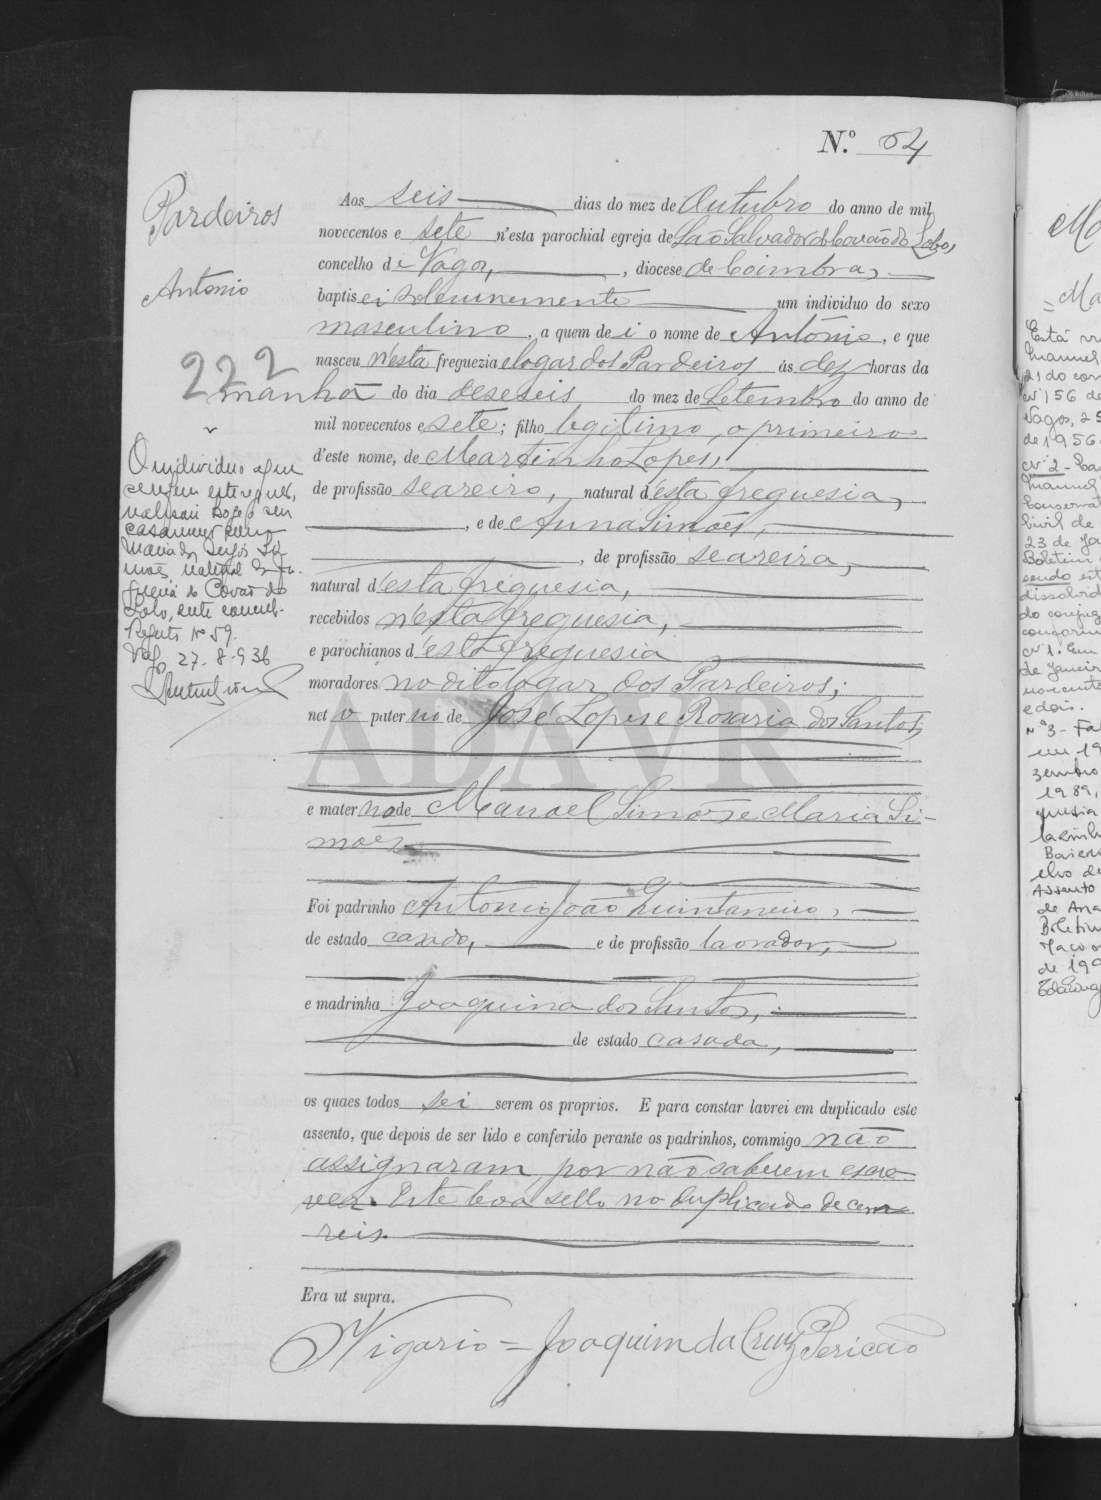 N.º 64
Pardeiros
Antonio
222
O individuo a que
se refere este registo,
realisou hoje o seu
casamento com
Maria de Si
mões natural da fre
guesia do Covão do
Lobo, deste concelho.
Registo Nº 59.
27-8-936
Aos seis dias do mez de Outubro do anno de mil
novecentos e sete n'esta parochial egreja de São Salvador do Covão do Lobo,
concelho de Vagos, , diocese de Coimbra,
baptisei solemnemente um individuo do sexo
masculino, a quem dei o nome de Antonio, e que
nasceu n'esta freguezia e logar dos Pardeiros ás dez horas da
manhã do dia deseseis do mez de Setembro do anno de
mil novecentos e sete; filho legitimo, o primeiro
d'este nome, de Martinho Lopes,
de profissão seareiro, natural d'esta freguesia,
, e de Anna Simões,
, de profissão seareira,
natural d'esta freguesia,
recebidos n'esta freguesia,
e parochianos d'esta freguesia
moradores no dito logar dos Pardeiros;
neto paterno de José Lopes e Rosaria dos Santos,
e materno de Manoel Simões e Maria Si-
mões.
Foi padrinho Antonio João Quintaneiro,
de estado casado, e de profissão lavrador,
e madrinha Joaquina dos Santos,
de estado casada,
os quaes todos sei serem os proprios. E para constar lavrei em duplicado este
assento, que depois de ser lido e conferido perante os padrinhos, commigo não
assignaram, por não saberem escre-
ver. Este leva sello no duplicado de cem
reis.
Era ut supra.
Vigario = Joaquim da Cruz Pericão
ADAVR
Está
Manuel
21 do
Nº 156 de
Vagos, 25
de 1956
Nº 2 -
Manuel
Civil de
23 de
Boletim
sendo
Nº 1. Em
de Janeiro
e dois.
Nº 3 -
1989,
Assento
de Ana
Boletim